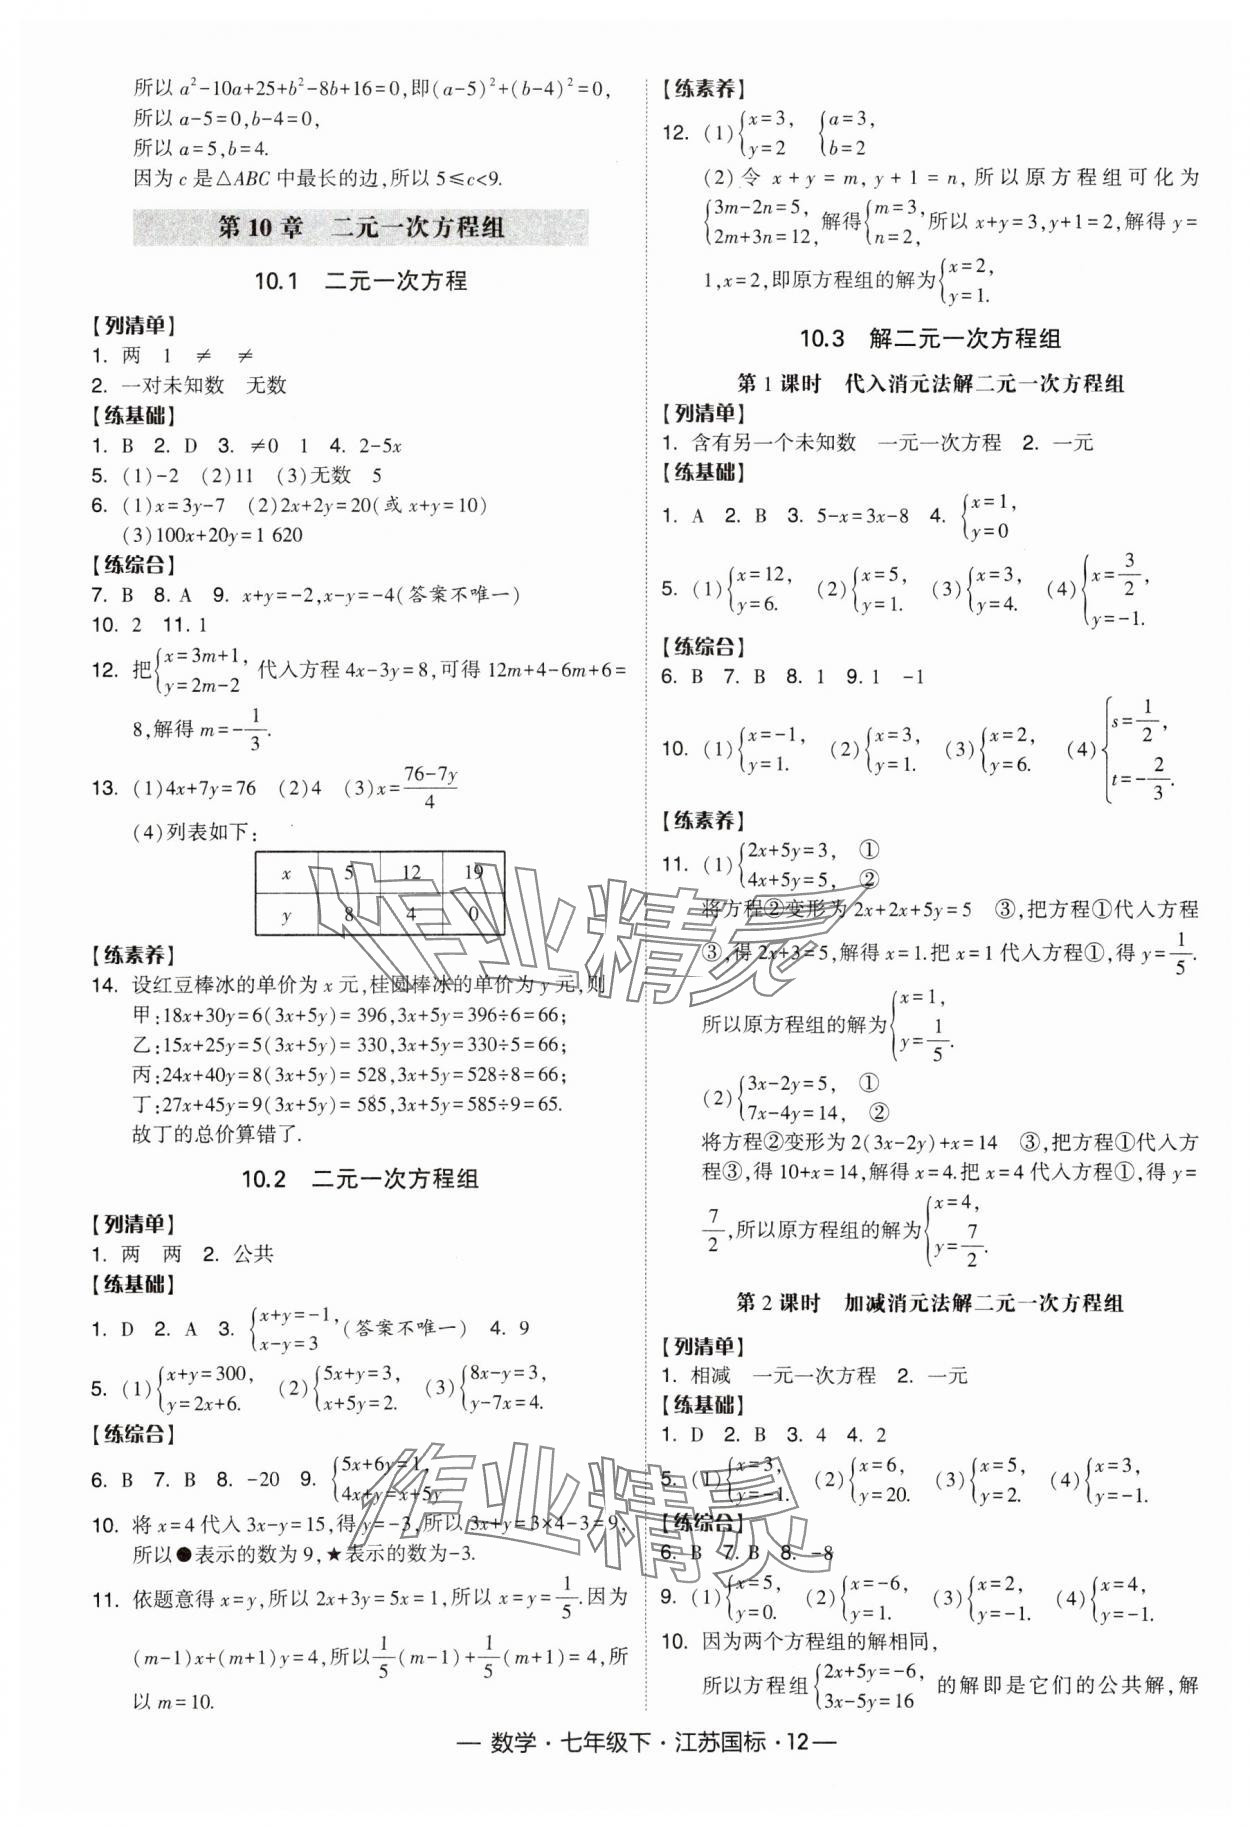 所以 a²-10a+25+b²-8b+16=0,即(a-5)²+(b-4)²=0,
所以 a-5=0,b-4=0,
所以 a=5,b=4.
因为 c 是△ABC 中最长的边,所以 5≤c<9.
第 10 章 二元一次方程组
10.1 二元一次方程
【列清单】
1. 两 1 ≠ ≠
2. 一对未知数 无数
【练基础】
1. B 2. D 3. ≠0 1 4. 2-5x
5. (1)-2 (2)11 (3)无数 5
6. (1)x=3y-7 (2)2x+2y=20(或 x+y=10)
(3)100x+20y=1 620
【练综合】
7. B 8. A 9. x+y=-2,x-y=-4(答案不唯一)
10. 2 11. 1
12. 把{x=3m+1, y=2m-2 代入方程 4x-3y=8,可得 12m+4-6m+6=
8,解得 m=-1/3.
13. (1)4x+7y=76 (2)4 (3)x=(76-7y)/4
(4)列表如下:
x 5 12 19
y 8 4 0
【练素养】
14. 设红豆棒冰的单价为 x 元,桂圆棒冰的单价为 y 元,则
甲:18x+30y=6(3x+5y)=396,3x+5y=396÷6=66;
乙:15x+25y=5(3x+5y)=330,3x+5y=330÷5=66;
丙:24x+40y=8(3x+5y)=528,3x+5y=528÷8=66;
丁:27x+45y=9(3x+5y)=585,3x+5y=585÷9=65.
故丁的总价算错了.
10.2 二元一次方程组
【列清单】
1. 两 两 2. 公共
【练基础】
1. D 2. A 3. {x+y=-1, x-y=3 (答案不唯一) 4. 9
5. (1){x+y=300, y=2x+6. (2){5x+y=3, x+5y=2. (3){8x-y=3, y-7x=4.
【练综合】
6. B 7. B 8. -20 9. {5x+6y=1, 4x+y=x+5y
10. 将 x=4 代入 3x-y=15,得 y=-3,所以 3x+y=3×4-3=9,
所以●表示的数为 9,★表示的数为-3.
11. 依题意得 x=y,所以 2x+3y=5x=1,所以 x=y=1/5.因为
(m-1)x+(m+1)y=4,所以1/5(m-1)+1/5(m+1)=4,所
以 m=10.
【练素养】
12. (1){x=3, y=2 {a=3, b=2
(2)令 x+y=m,y+1=n,所以原方程组可化为
{3m-2n=5, 2m+3n=12, 解得{m=3, n=2, 所以 x+y=3,y+1=2,解得 y=
1,x=2,即原方程组的解为{x=2, y=1.
10.3 解二元一次方程组
第 1 课时 代入消元法解二元一次方程组
【列清单】
1. 含有另一个未知数 一元一次方程 2. 一元
【练基础】
1. A 2. B 3. 5-x=3x-8 4. {x=1, y=0
5. (1){x=12, y=6. (2){x=5, y=1. (3){x=3, y=4. (4){x=3/2, y=-1.
【练综合】
6. B 7. B 8. 1 9. 1 -1
10. (1){x=-1, y=1. (2){x=3, y=1. (3){x=2, y=6. (4){s=1/2, t=-2/3.
【练素养】
11. (1){2x+5y=3, ① 4x+5y=5, ②
将方程②变形为 2x+2x+5y=5 ③,把方程①代入方程
③,得 2x+3=5,解得 x=1.把 x=1 代入方程①,得 y=1/5.
所以原方程组的解为{x=1, y=1/5.
(2){3x-2y=5, ① 7x-4y=14, ②
将方程②变形为 2(3x-2y)+x=14 ③,把方程①代入方
程③,得 10+x=14,解得 x=4.把 x=4 代入方程①,得 y=
7/2,所以原方程组的解为{x=4, y=7/2.
第 2 课时 加减消元法解二元一次方程组
【列清单】
1. 相减 一元一次方程 2. 一元
【练基础】
1. D 2. B 3. 4 4. 2
5. (1){x=3, y=-1. (2){x=6, y=20. (3){x=5, y=2. (4){x=3, y=-1.
【练综合】
6. B 7. B 8. -8
9. (1){x=5, y=0. (2){x=-6, y=1. (3){x=2, y=-1. (4){x=4, y=-1.
10. 因为两个方程组的解相同,
所以方程组{2x+5y=-6, 3x-5y=16 的解即是它们的公共解,解
— 数学·七年级下·江苏国标·12 —
作业精灵
作业精灵